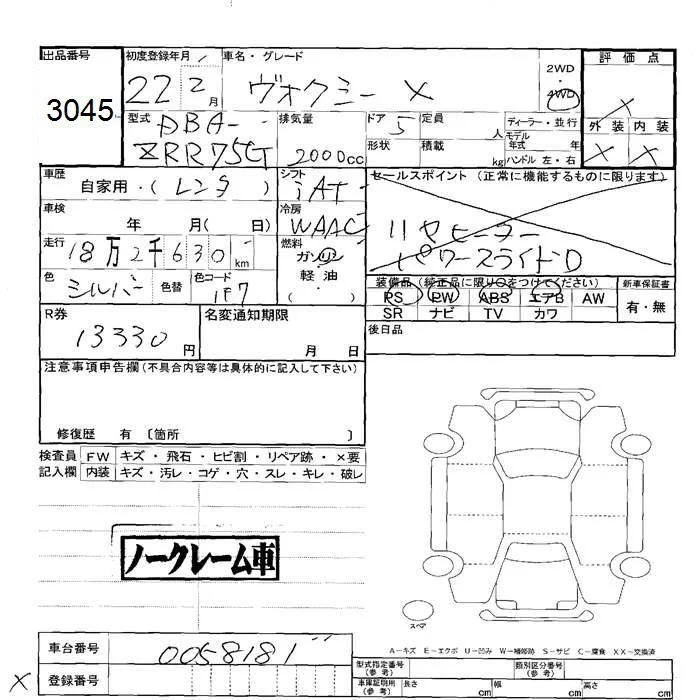 出品番号 初度登録年月 車名・グレード 2WD・4WD 評価点
3045 22 2月 ヴォクシー X X
型式 DBA- 排気量 ドア 5 定員 人 ディーラー・並行 外装 内装
ZRR75G 2000cc 形状 積載 kg モデル年式 年 ハンドル 左・右 X X
車歴 自家用・(レンタ) シフト iAT セールスポイント (正常に機能するものに限ります)
車検 年 月(日) 冷房 WAAC リヤヒーター
走行 18万2千630km 燃料 ガソリン パワースライドD
軽油
色 シルバー 色替 色コード 1F7 ( ・ ) 装備品 (純正品に限り○をつけてください) 新車保証書
PS PW ABS エアB AW 有・無
R券 13330円 名変通知期限 月 日 SR ナビ TV カワ
後日品
注意事項申告欄(不具合内容等は具体的に記入して下さい)
修復歴 有 〔箇所 〕
検査員 FW キズ・飛石・ヒビ割・リペア跡・×要
記入欄 内装 キズ・汚レ・コゲ・穴・スレ・キレ・破レ
ノークレーム車
スペア
A-キズ E-エクボ U-凹み W-補修跡 S-サビ C-腐食 XX-交換済
車台番号 0058181
型式指定番号(参考) 類別区分番号(参考)
X 登録番号 車庫証明用(参考) 長さ cm 幅 cm 高さ cm